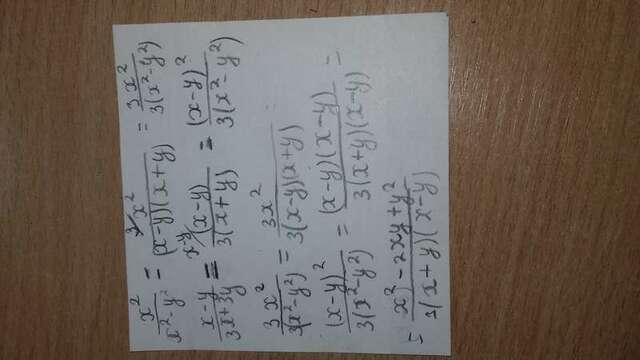 x²/(x²-y²) = ³⁄ x²/((x-y)(x+y)) = 3x²/(3(x²-y²))
(x-y)/(3x+3y) = ˣ⁻ʸ⁄ (x-y)/(3(x+y)) = (x-y)²/(3(x²-y²))
3x²/(3(x²-y²)) = 3x²/(3(x-y)(x+y))
(x-y)²/(3(x²-y²)) = (x-y)(x-y)/(3(x+y)(x-y)) =
= (x²-2xy+y²)/(3(x+y)(x-y))